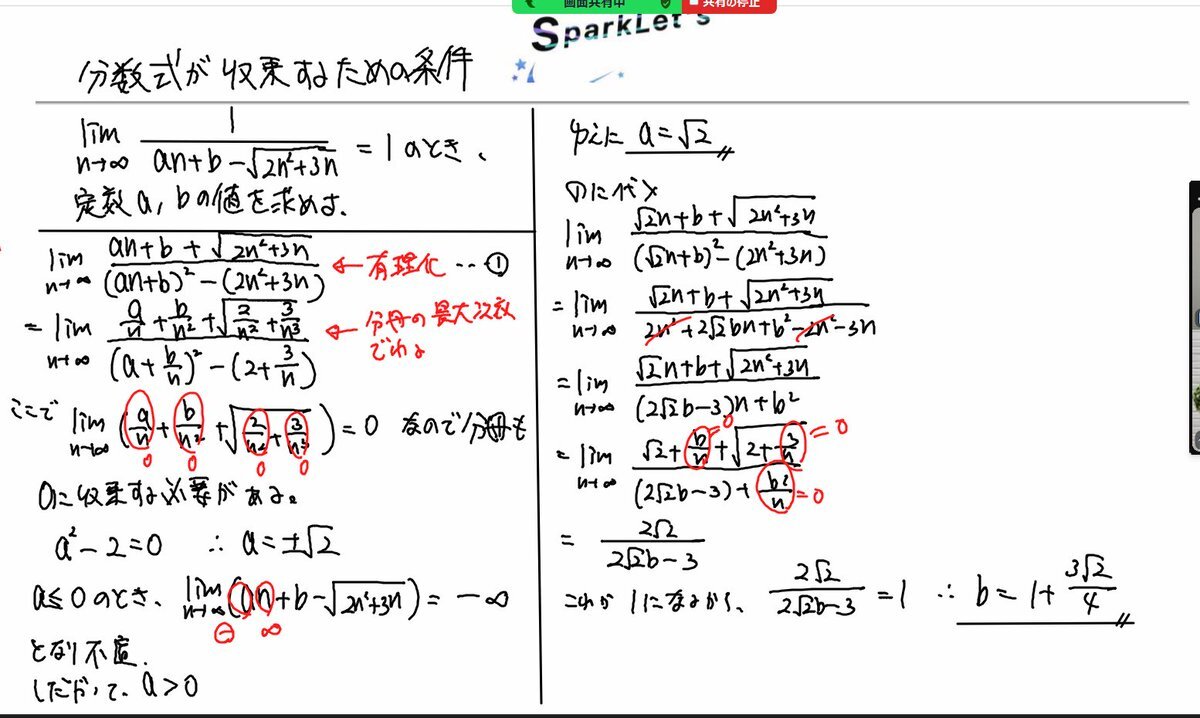 画面共有中 共有の停止
SparkLet's
分数式が収束するための条件
lim n→∞ 1/(an+b-√(2n²+3n)) = 1 のとき、
定数a, bの値を求めよ.
lim n→∞ (an+b+√(2n²+3n))/((an+b)²-(2n²+3n)) ← 有理化 …①
= lim n→∞ (a/n+b/n²+√(2/n²+3/n³))/((a+b/n)²-(2+3/n)) ← 分母の最大次数
でわる
ここで lim n→∞ (a/n+b/n²+√(2/n²+3/n³)) = 0 なので分母も
0 0 0 0
0に収束する必要がある。
a²-2=0 ∴ a=±√2
a≤0のとき、lim n→∞ (an+b-√(2n²+3n)) = -∞
⊖ ∞
となり不適.
したがって、a>0
ゆえに a=√2
①に代入
lim n→∞ (√2n+b+√(2n²+3n))/((√2n+b)²-(2n²+3n))
= lim n→∞ (√2n+b+√(2n²+3n))/(2n²+2√2bn+b²-2n²-3n)
= lim n→∞ (√2n+b+√(2n²+3n))/((2√2b-3)n+b²)
= lim n→∞ (√2+b/n+√(2+3/n))/((2√2b-3)+b²/n) =0 =0 =0
= 2√2/(2√2b-3)
これが1になるから、2√2/(2√2b-3) = 1 ∴ b=1+3√2/4